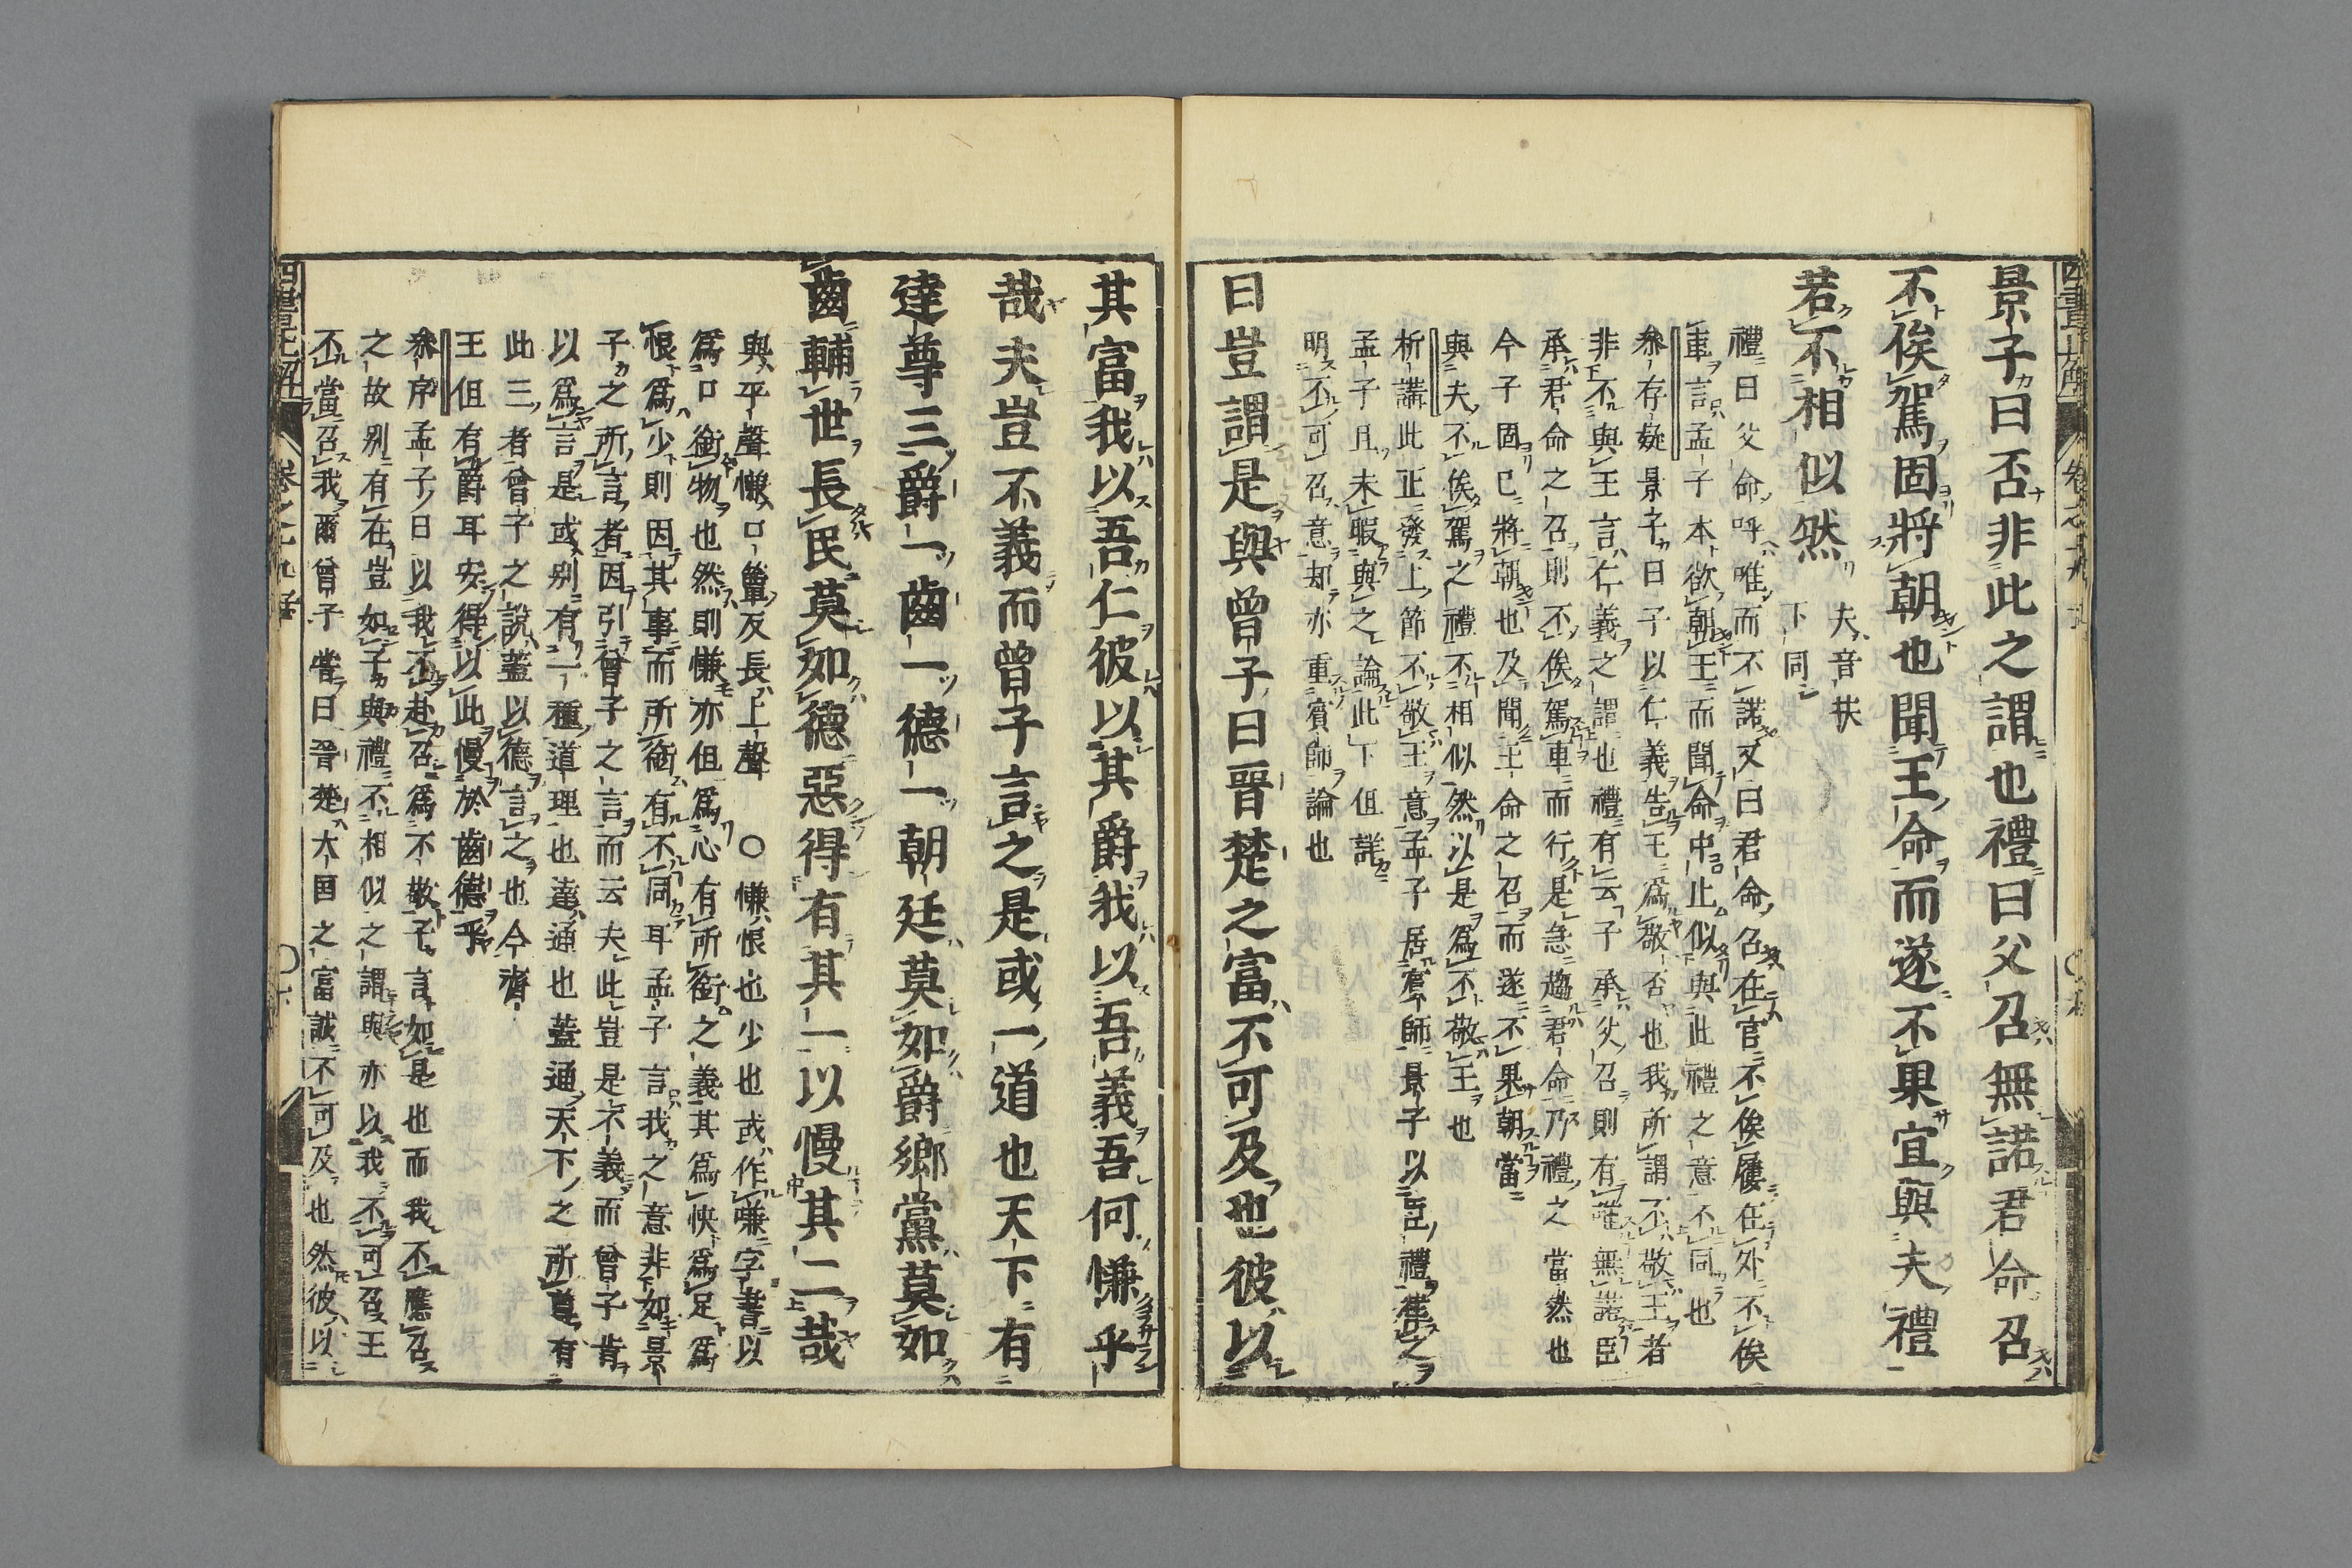 景子曰否非此之謂也禮曰父召無諾君命召
不俟駕固將朝也聞王命而遂不果宜與夫禮
若不相似然
夫音扶
下同
禮曰父命呼唯而不諾又曰君命召在官不俟屨在外不俟
車言孟子本欲朝王而聞命中止似與此禮之意不同也
參存疑景子曰子以仁義告王爲敬否也我所謂不敬王者
非不與王言仁義之謂也禮有云子承父召則有唯無諾臣
承君命之召則不俟駕車而行是急趨君命乃禮之當然也
今子固已將朝也及聞王命之召而遂不果朝當
與夫不俟駕之禮不相似然以是爲不敬王也
析講此正發上節不敬王意孟子居賓師景子以臣禮責之
孟子且未暇與之論此下但詳
明不可召意却亦重賓師論也
曰豈謂是與曾子曰晉楚之富不可及也彼以
其富我以吾仁彼以其爵我以吾義吾何慊乎
哉夫豈不義而曾子言之是或一道也天下有
達尊三爵一齒一德一朝廷莫如爵鄉黨莫如
齒輔世長民莫如德惡得有其一以慢其二哉
與平聲慊口簟反長上聲 ○慊恨也少也或作嗛字書以
爲口銜物也然則慊亦但爲心有所銜之義其爲快爲足爲
恨爲少則因其事而所銜有不同耳孟子言我之意非如景
子之所言者因引曾子之言而云夫此豈是不義而曾子肯
以爲言是或別有一種道理也達通也蓋通天下之所尊有
此三者曾子之說蓋以德言之也今齊
王但有爵耳安得以此慢於齒德乎
參序孟子曰以我不赴召爲不敬子言如是也而我不應召
之故別有在豈如子與禮不相似之謂與亦以我不可召王
不當召我爾曾子嘗曰晉楚大國之富誠不可及也然彼以